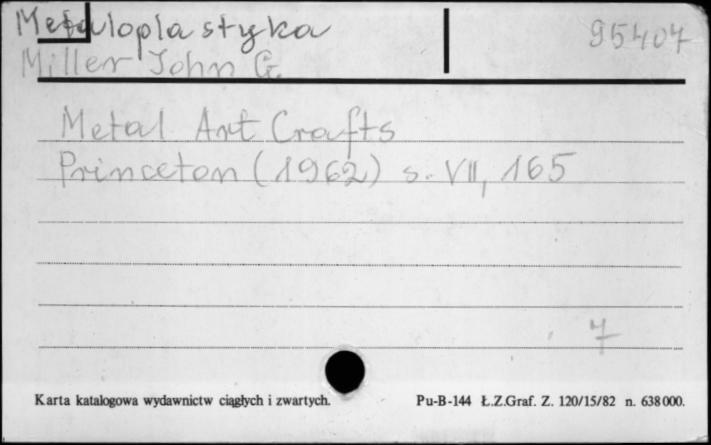 Metaloplastyka 95407
Miller John G.
Metal Art Crafts
Princeton (1962) s. VII, 165
7
Karta katalogowa wydawnictw ciągłych i zwartych. Pu-B-144 Ł.Z.Graf. Z. 120/15/82 n. 638000.